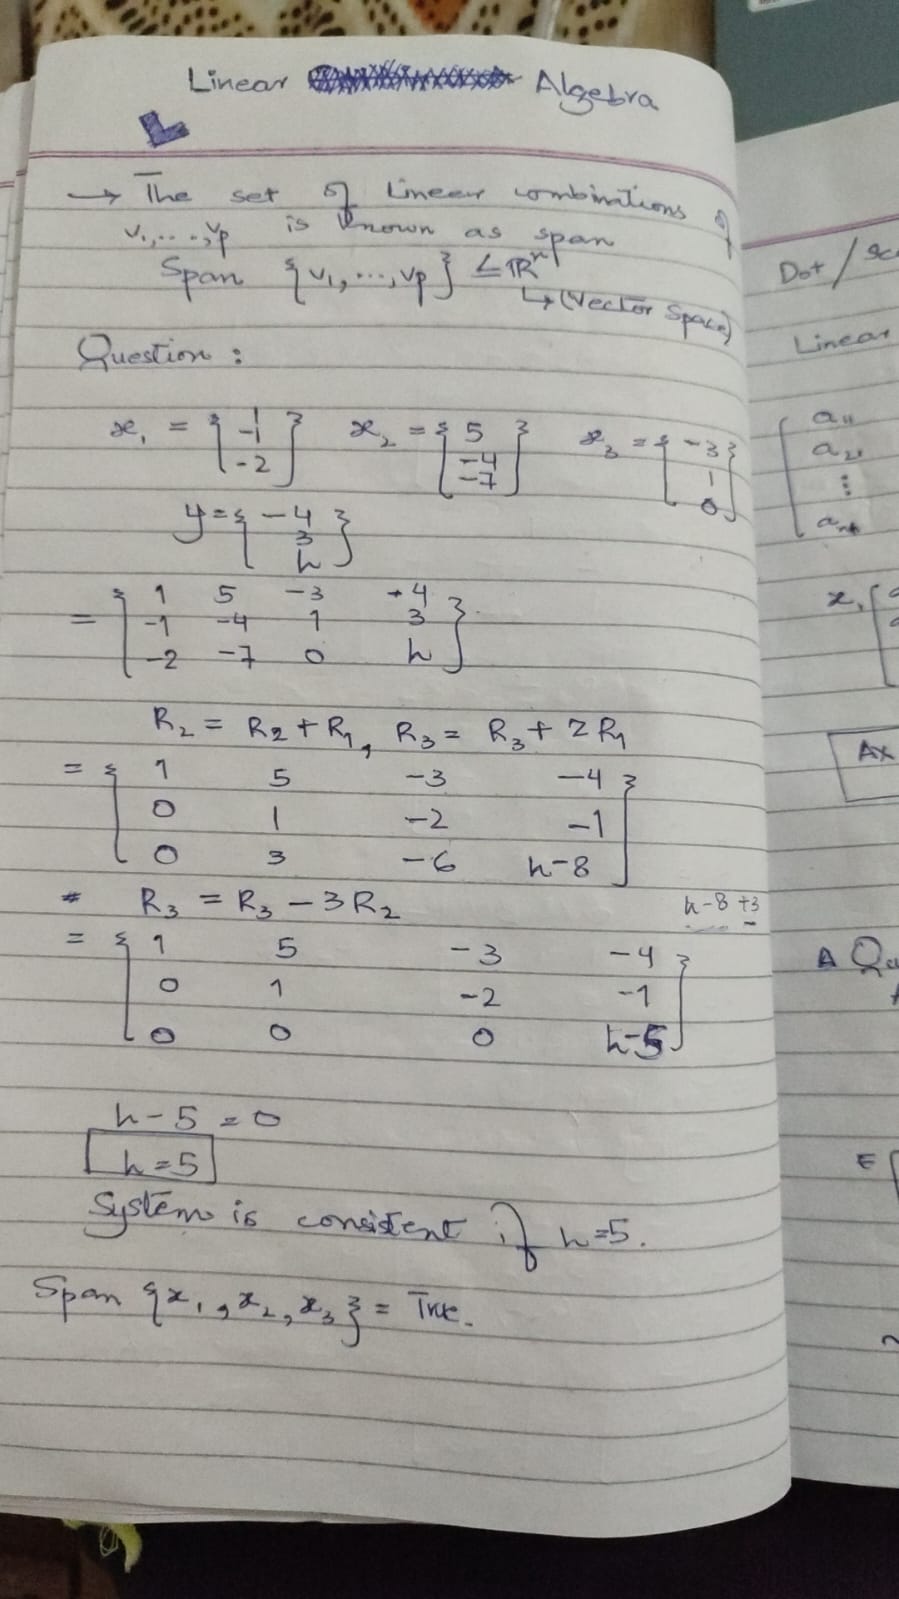 Linear Algebra
L
→ The set of Linear combinations of
v₁,...,vp is known as span
Span {v₁,...,vp} ≤ ℝⁿ
↳ (Vector Space)
Question :
x₁ = [1 -1 -2] x₂ = [5 -4 -7] x₃ = [-3 1 0]
y = [-4 3 h]
= [1 5 -3 -4
-1 -4 1 3
-2 -7 0 h]
R₂ = R₂ + R₁, R₃ = R₃ + 2R₁
= [1 5 -3 -4
0 1 -2 -1
0 3 -6 h-8]
* R₃ = R₃ - 3R₂
h-8+3
= [1 5 -3 -4
0 1 -2 -1
0 0 0 h-5]
h-5 = 0
h=5
System is consistent if h=5.
Span {x₁, x₂, x₃} = True.
Dot /
Linear
a₁₁
a₂₁
⋮
x₁
AX
A Qu
E